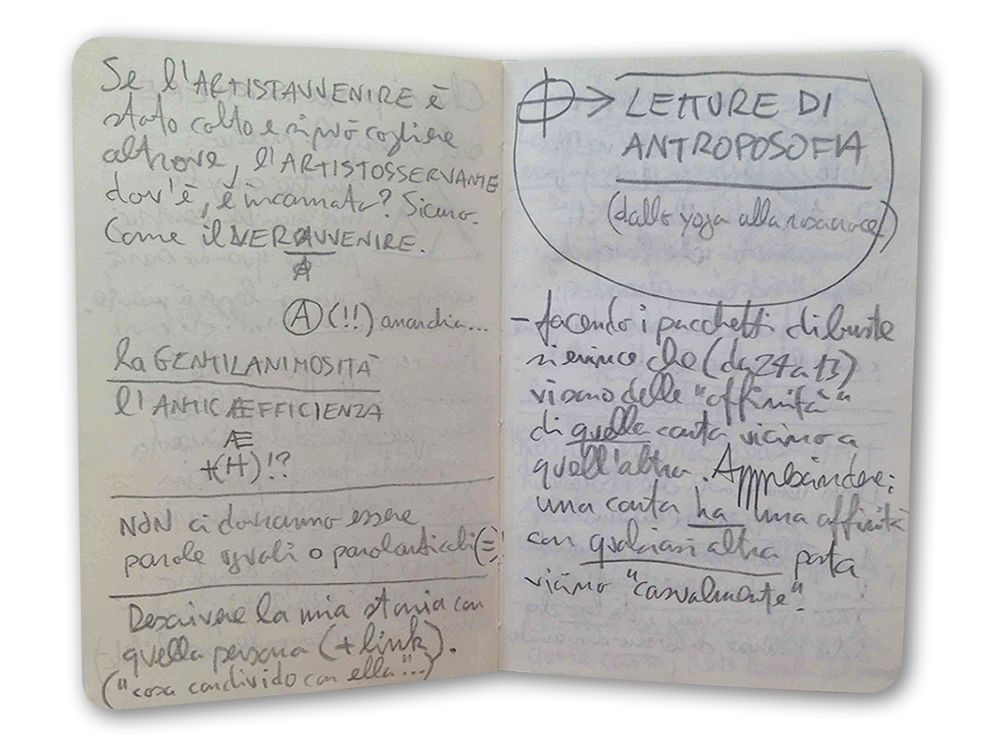 Se l'ARTISTAVVENIRE è
stato colto e si può cogliere
altrove, l'ARTISTOSSERVANTE
dov'è, è incarnato? Sicuro.
Come il VERAVVENIRE.
A
A (!!) anarchia...
la GENTILANIMOSITÀ
l'ANTICÆFFICIENZA
Æ
+(H)!?
NON ci dovranno essere
parole uguali o parolanticali (=)
Descrivere la mia storia con
quella persona (+ link).
("cosa condivido con ella"...)
→ LETTURE DI
ANTROPOSOFIA
(dallo yoga alla rosacroce)
- facendo i pacchetti di buste
si evince che (da 24 a 13)
vi sono delle "affinità"
di quella carta vicino a
quell'altra. Approfondire:
una carta ha una affinità
con qualsiasi altra posta
vicino "casualmente".